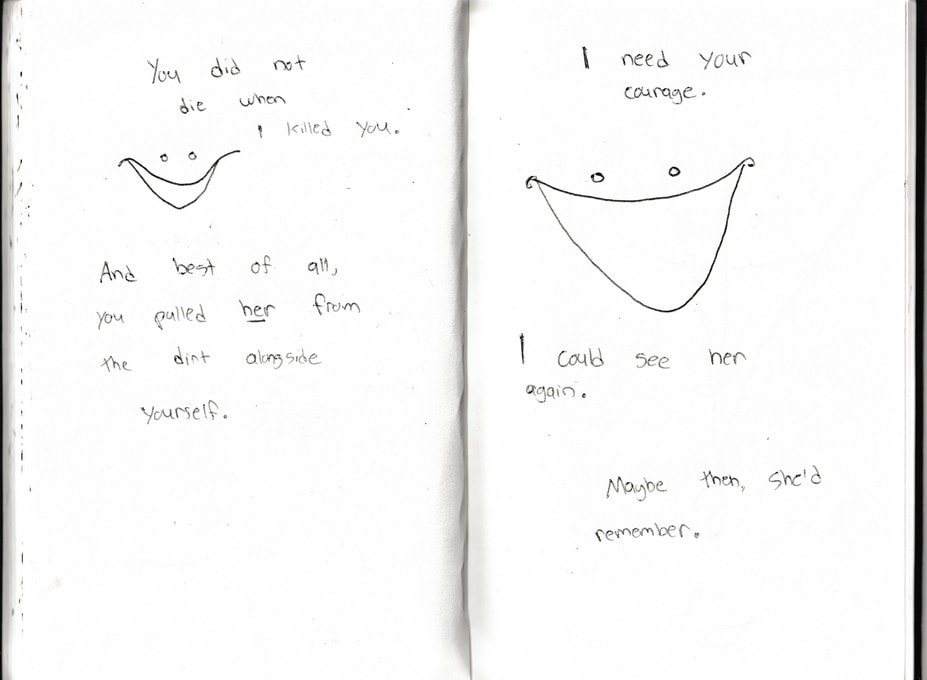 You did not
die when
I killed you.
And best of all,
you pulled her from
the dirt alongside
yourself.
I need your
courage.
I could see her
again.
Maybe then, she'd
remember.